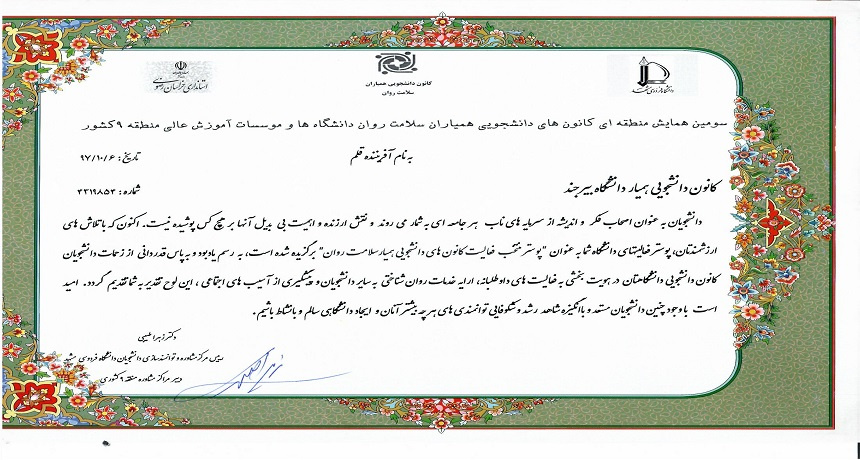 استانداری خراسان رضوی
کانون دانشجویی همیاران
سلامت روان
سومین همایش منطقه ای کانون های دانشجویی همیاران سلامت روان دانشگاه ها و موسسات آموزش عالی منطقه ۹ کشور
به نام آفریننده قلم
تاریخ: ۹۷/۱۰/۶
کانون دانشجویی همیار دانشگاه بیرجند
شماره: ۳۳۱۹۸۵۳
دانشجویان به عنوان اصحاب فکر و اندیشه از سرمایه های ناب هر جامعه ای به شمار می روند و نقش ارزنده و اهمیت بی بدیل آنها بر هیچ کس پوشیده نیست. اکنون که با تلاش های
ارزشمندتان، پوستر فعالیتهای دانشگاه شما به عنوان "پوستر منتخب فعالیت کانون های دانشجویی همیار سلامت روان" برگزیده شده است، به رسم یادبود و به پاس قدردانی از زحمات دانشجویان
کانون دانشجویی دانشگاهتان در هویت بخشی به فعالیت های داوطلبانه، ارایه خدمات روان شناختی به سایر دانشجویان و پیشگیری از آسیب های اجتماعی، این لوح تقدیر به شما تقدیم گردد. امید
است با وجود چنین دانشجویان مستعد و باانگیزه شاهد رشد و شکوفایی توانمندی های هر چه بیشتر آنان و ایجاد دانشگاهی سالم و بانشاط باشیم.
دکتر زهرا طبیبی
رییس مرکز مشاوره و توانمندسازی دانشجویان دانشگاه فردوسی مشهد
دبیر مراکز مشاوره منطقه ۹ کشوری